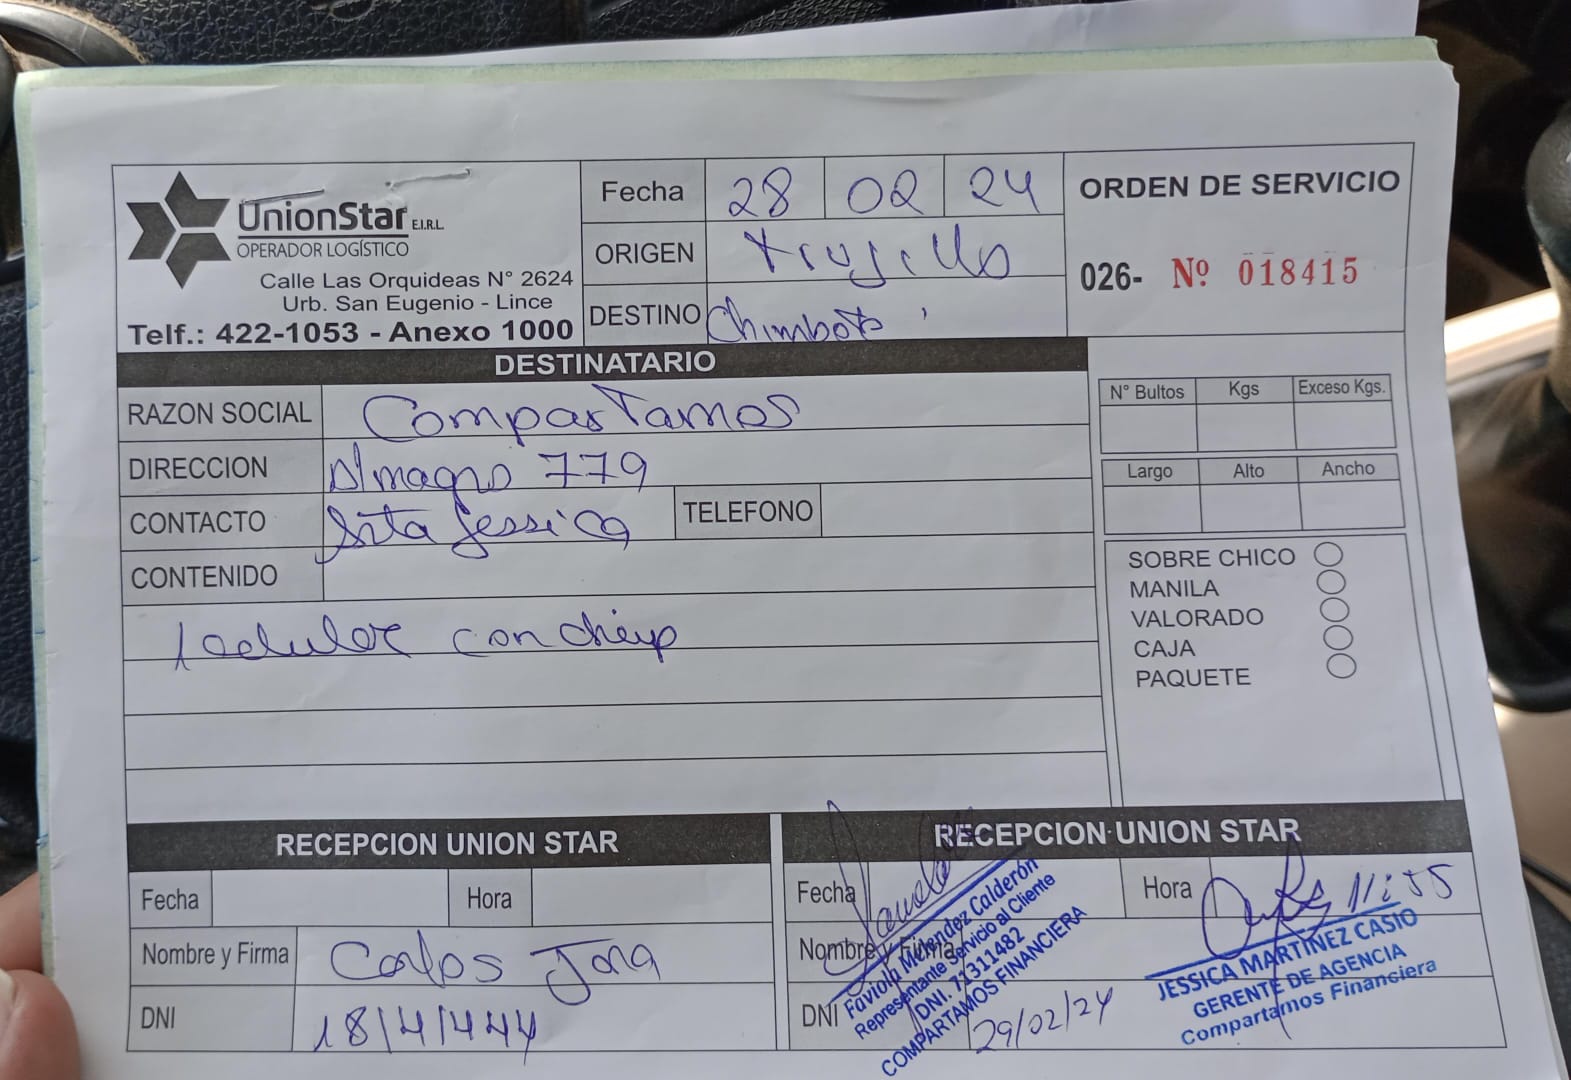 UnionStar E.I.R.L.
OPERADOR LOGÍSTICO
Calle Las Orquideas N° 2624
Urb. San Eugenio - Lince
Telf.: 422-1053 - Anexo 1000
Fecha 28 02 24
ORIGEN Trujillo
DESTINO Chimbote
ORDEN DE SERVICIO
026- Nº 018415
DESTINATARIO
RAZON SOCIAL Compartamos
DIRECCION Almagro 779
CONTACTO Srta Jessica TELEFONO
CONTENIDO
1 celular con chip
N° Bultos Kgs Exceso Kgs.
Largo Alto Ancho
SOBRE CHICO
MANILA
VALORADO
CAJA
PAQUETE
RECEPCION UNION STAR
Fecha Hora
Nombre y Firma Carlos Jara
DNI 18141444
RECEPCION UNION STAR
Fecha Hora 11:55
Nombre y Firma
DNI 29/02/24
Faviola Mendez Calderón
Representante Servicio al Cliente
DNI. 71311482
COMPARTAMOS FINANCIERA
JESSICA MARTINEZ CASIO
GERENTE DE AGENCIA
Compartamos Financiera